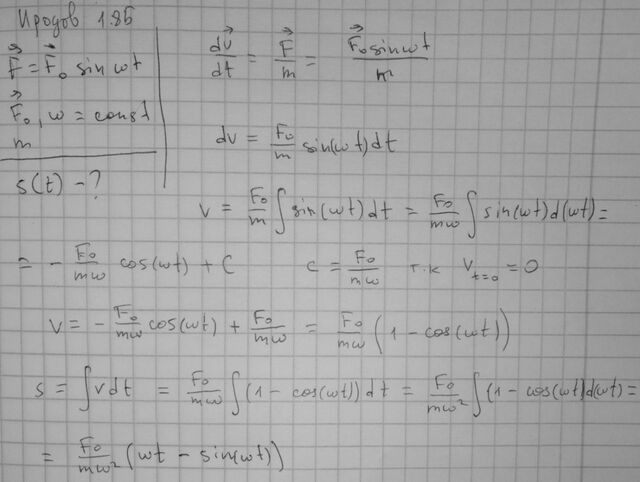 Иродов 1.85
F⃗ = F⃗₀ sin ωt
F⃗₀, ω = const
m
s(t) - ?
dv⃗/dt = F⃗/m = F⃗₀ sin ωt/m
dv = F₀/m sin(ωt)dt
v = F₀/m ∫ sin(ωt) dt = F₀/mω ∫ sin(ωt)d(ωt) =
= - F₀/mω cos(ωt) + C   c = F₀/mω т.к v_{t=0} = 0
v = - F₀/mω cos(ωt) + F₀/mω = F₀/mω (1 - cos(ωt))
s = ∫ v dt = F₀/mω ∫ (1 - cos(ωt)) dt = F₀/mω² ∫ (1 - cos(ωt)d(ωt) =
= F₀/mω² (ωt - sin(ωt))